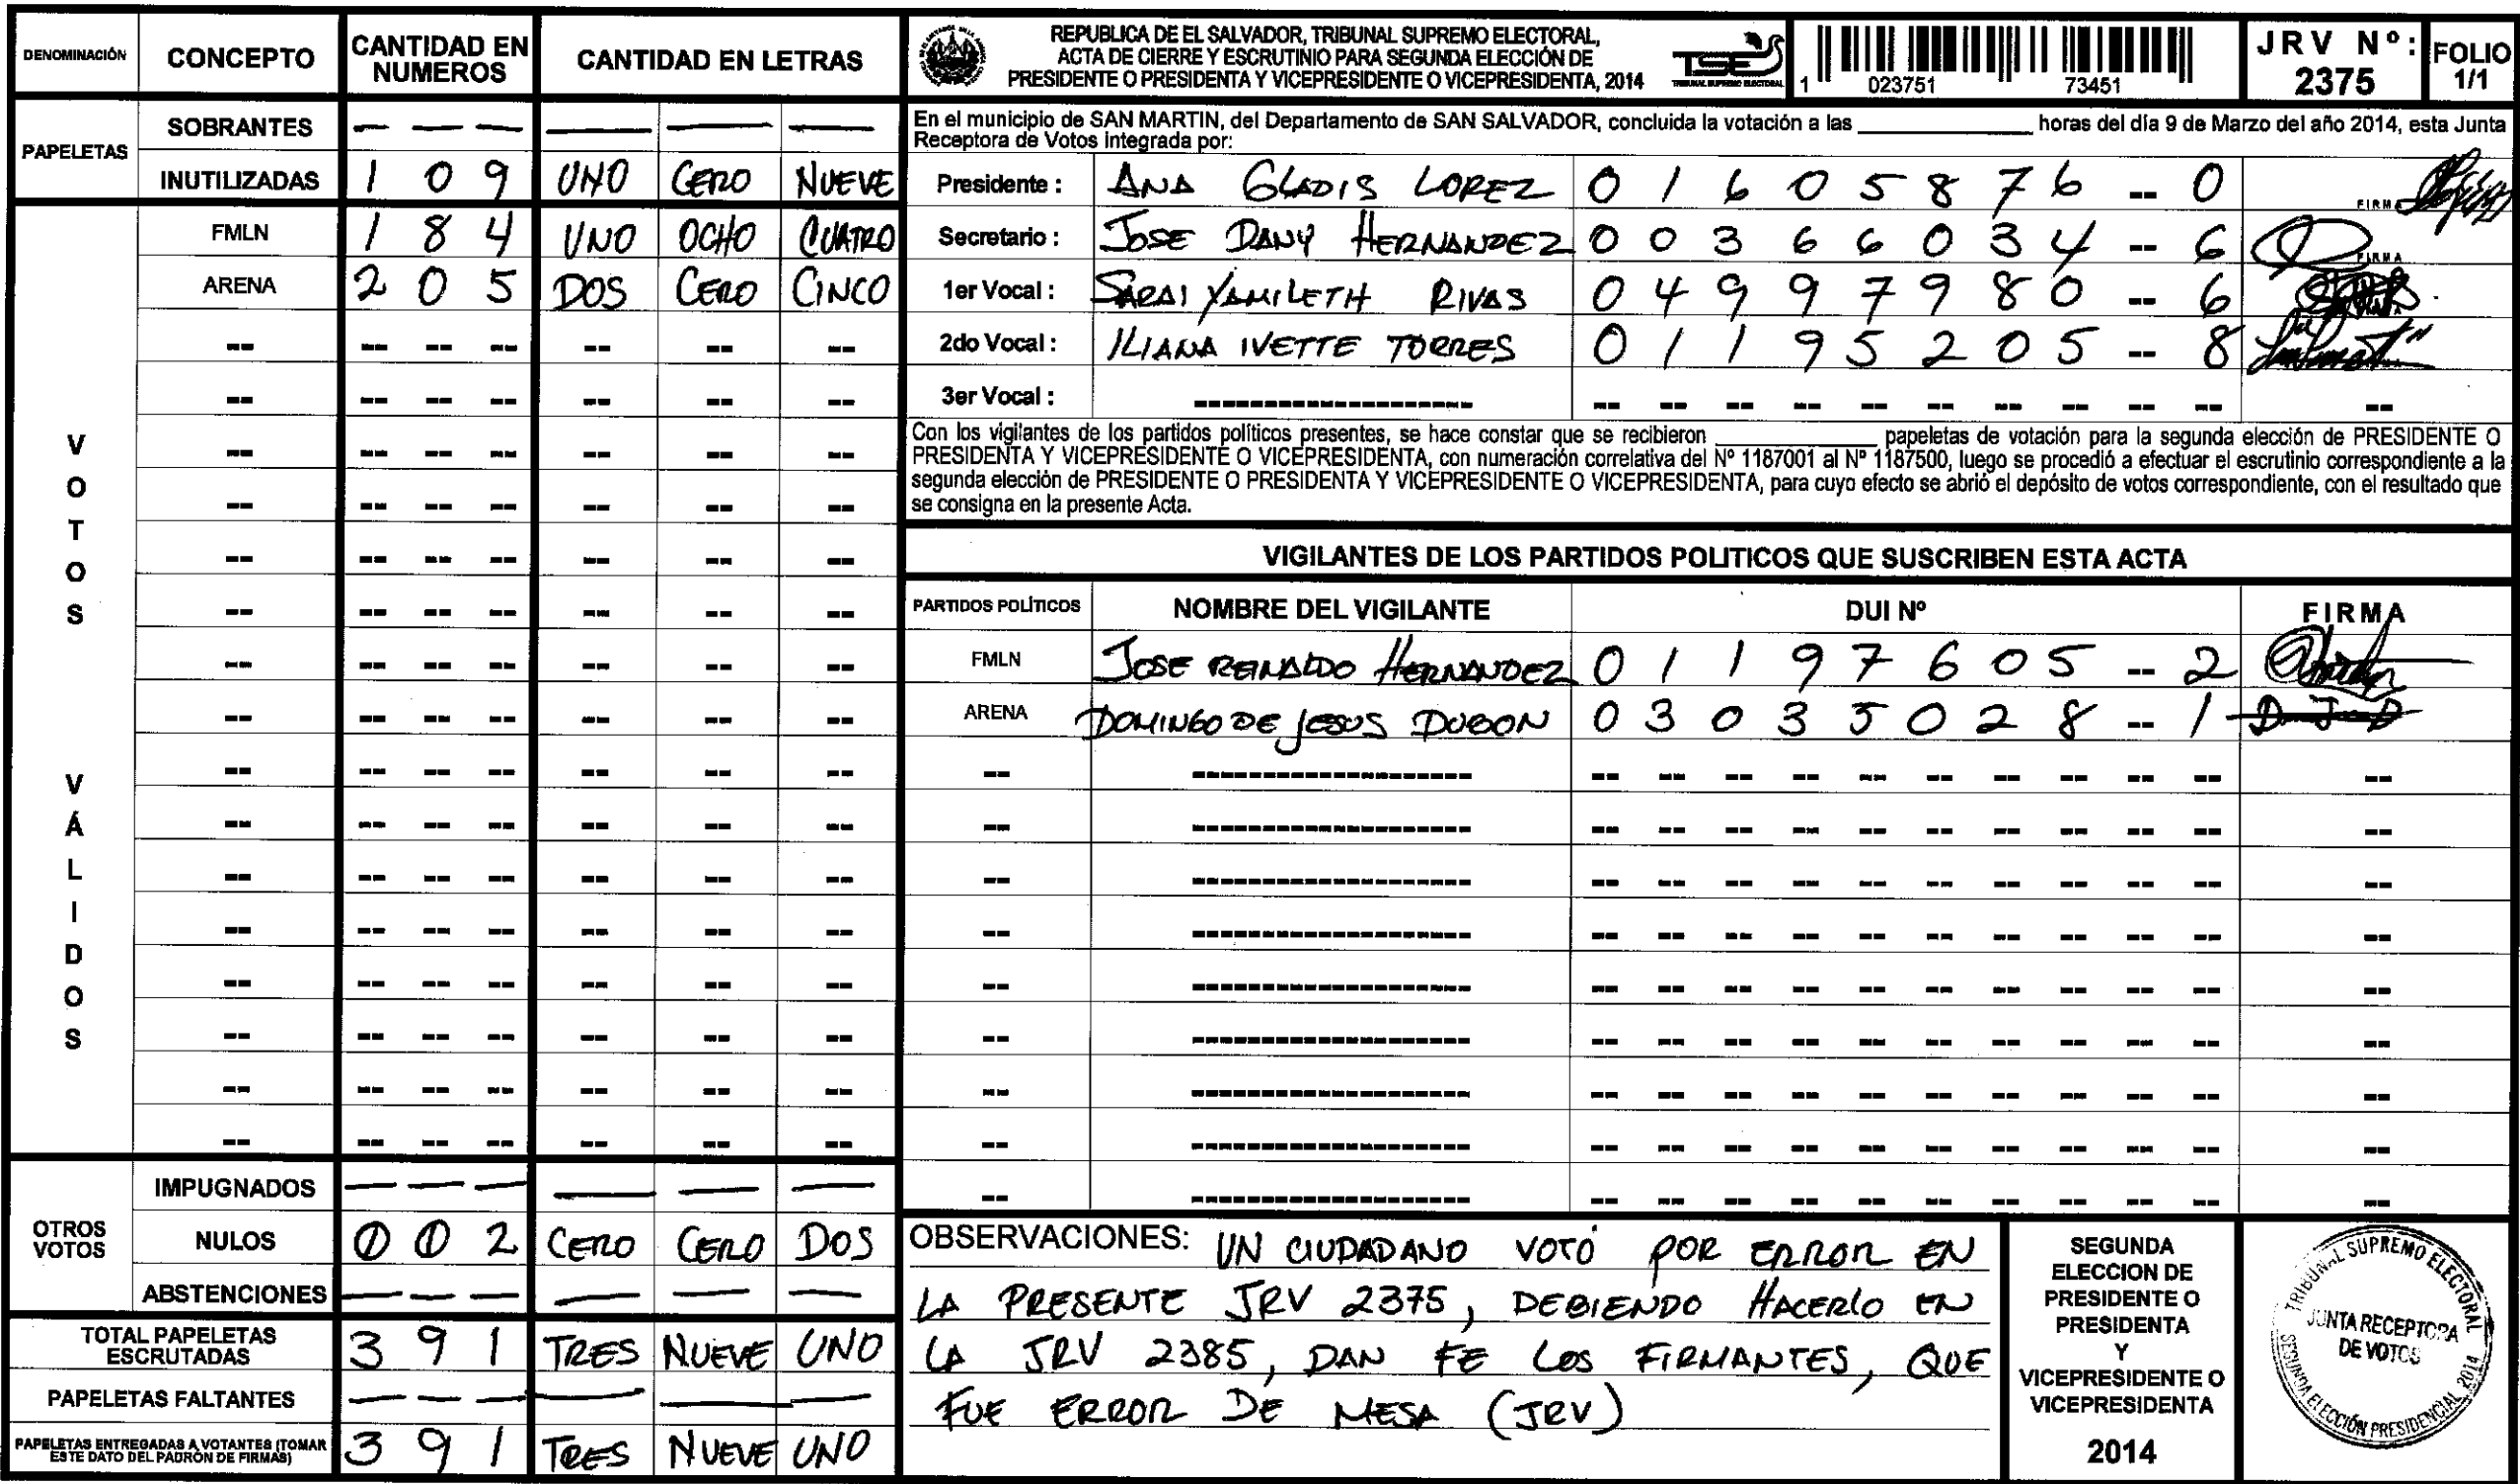 DENOMINACIÓN CONCEPTO CANTIDAD EN NUMEROS CANTIDAD EN LETRAS
PAPELETAS
SOBRANTES — — — — — —
INUTILIZADAS 1 0 9 UNO CERO NUEVE
VOTOS VÁLIDOS
FMLN 1 8 4 UNO OCHO CUATRO
ARENA 2 0 5 DOS CERO CINCO
OTROS VOTOS
IMPUGNADOS — — — — — —
NULOS 0 0 2 CERO CERO DOS
ABSTENCIONES — — — — — —
TOTAL PAPELETAS ESCRUTADAS 3 9 1 TRES NUEVE UNO
PAPELETAS FALTANTES — — — — — —
PAPELETAS ENTREGADAS A VOTANTES (TOMAR ESTE DATO DEL PADRÓN DE FIRMAS) 3 9 1 TRES NUEVE UNO
REPUBLICA DE EL SALVADOR, TRIBUNAL SUPREMO ELECTORAL,
ACTA DE CIERRE Y ESCRUTINIO PARA SEGUNDA ELECCIÓN DE
PRESIDENTE O PRESIDENTA Y VICEPRESIDENTE O VICEPRESIDENTA, 2014
TSE
TRIBUNAL SUPREMO ELECTORAL
1 023751 73451
JRV Nº: 2375
FOLIO 1/1
En el municipio de SAN MARTIN, del Departamento de SAN SALVADOR, concluida la votación a las ____ horas del día 9 de Marzo del año 2014, esta Junta
Receptora de Votos integrada por:
Presidente : ANA GLADIS LOPEZ 0 1 6 0 5 8 7 6 -- 0 FIRMA
Secretario : JOSE DANY HERNANDEZ 0 0 3 6 6 0 3 4 -- 6 FIRMA
1er Vocal : SARAI YAMILETH RIVAS 0 4 9 9 7 9 8 0 -- 6
2do Vocal : ILIANA IVETTE TORRES 0 1 1 9 5 2 0 5 -- 8
3er Vocal : -------------------
Con los vigilantes de los partidos políticos presentes, se hace constar que se recibieron ____ papeletas de votación para la segunda elección de PRESIDENTE O
PRESIDENTA Y VICEPRESIDENTE O VICEPRESIDENTA, con numeración correlativa del Nº 1187001 al Nº 1187500, luego se procedió a efectuar el escrutinio correspondiente a la
segunda elección de PRESIDENTE O PRESIDENTA Y VICEPRESIDENTE O VICEPRESIDENTA, para cuyo efecto se abrió el depósito de votos correspondiente, con el resultado que
se consigna en la presente Acta.
VIGILANTES DE LOS PARTIDOS POLITICOS QUE SUSCRIBEN ESTA ACTA
PARTIDOS POLÍTICOS NOMBRE DEL VIGILANTE DUI Nº FIRMA
FMLN JOSE REINALDO HERNANDEZ 0 1 1 9 7 6 0 5 -- 2
ARENA DOMINGO DE JESUS DUBON 0 3 0 3 5 0 2 8 -- 1
OBSERVACIONES: UN CIUDADANO VOTÓ POR ERROR EN
LA PRESENTE JRV 2375, DEBIENDO HACERLO EN
LA JRV 2385, DAN FE LOS FIRMANTES, QUE
FUE ERROR DE MESA (JRV)
SEGUNDA
ELECCION DE
PRESIDENTE O
PRESIDENTA
Y
VICEPRESIDENTE O
VICEPRESIDENTA
2014
TRIBUNAL SUPREMO ELECTORAL
JUNTA RECEPTORA
DE VOTOS
SEGUNDA ELECCIÓN PRESIDENCIAL 2014